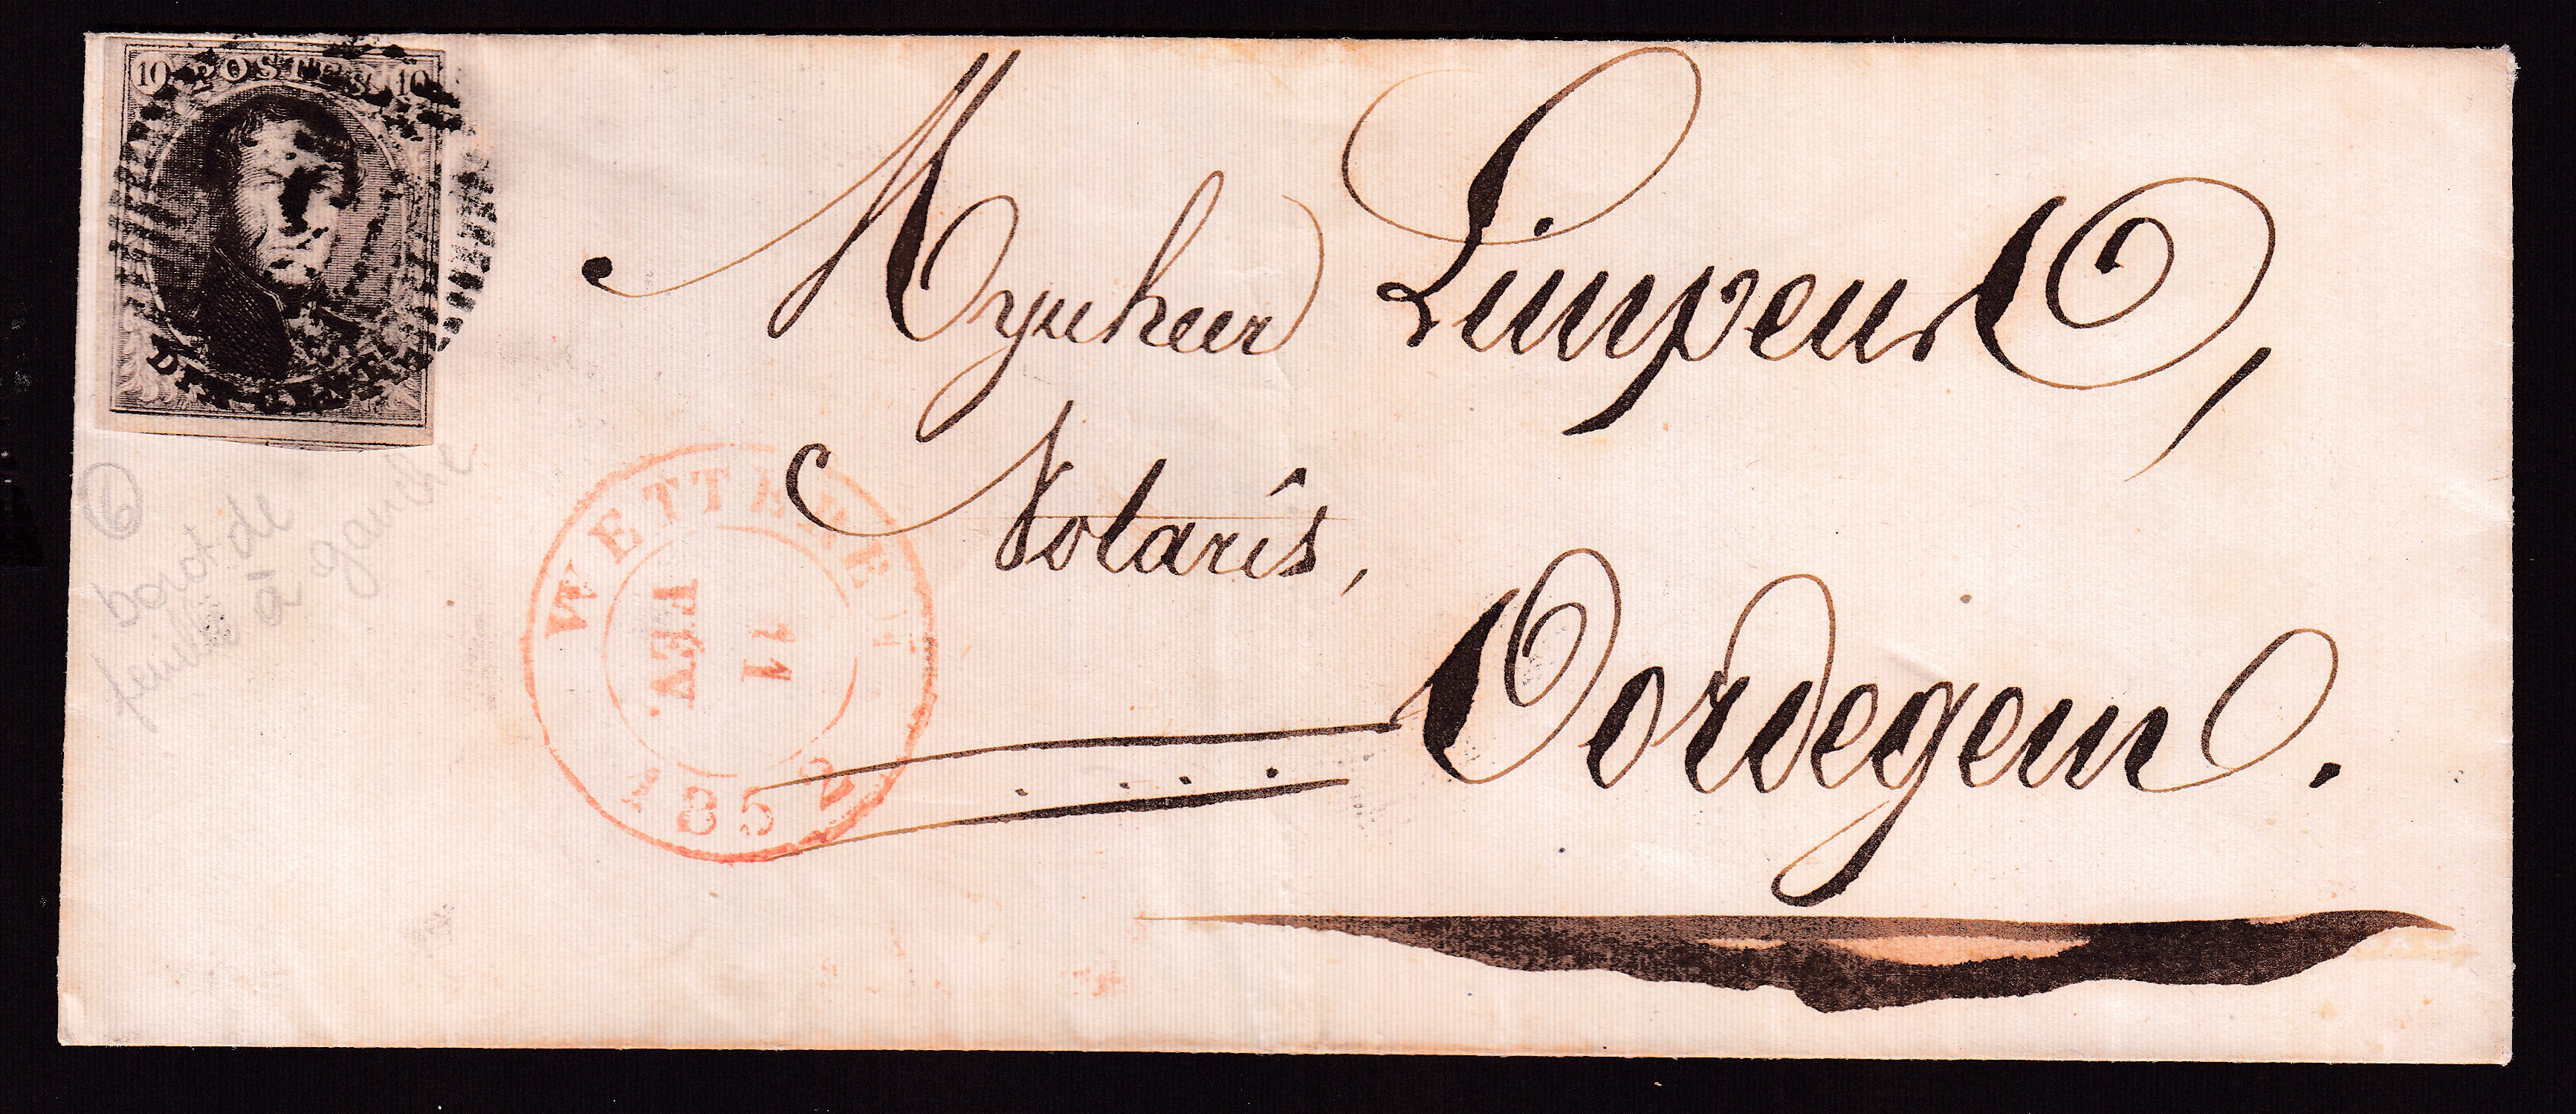 10 POSTES 10
DIX CENTIMES
Mynheer Limpens,
Notaris,
Oordegem.
WETTEREN
11
FEV.
1852
6
bord de
feuille à gauche